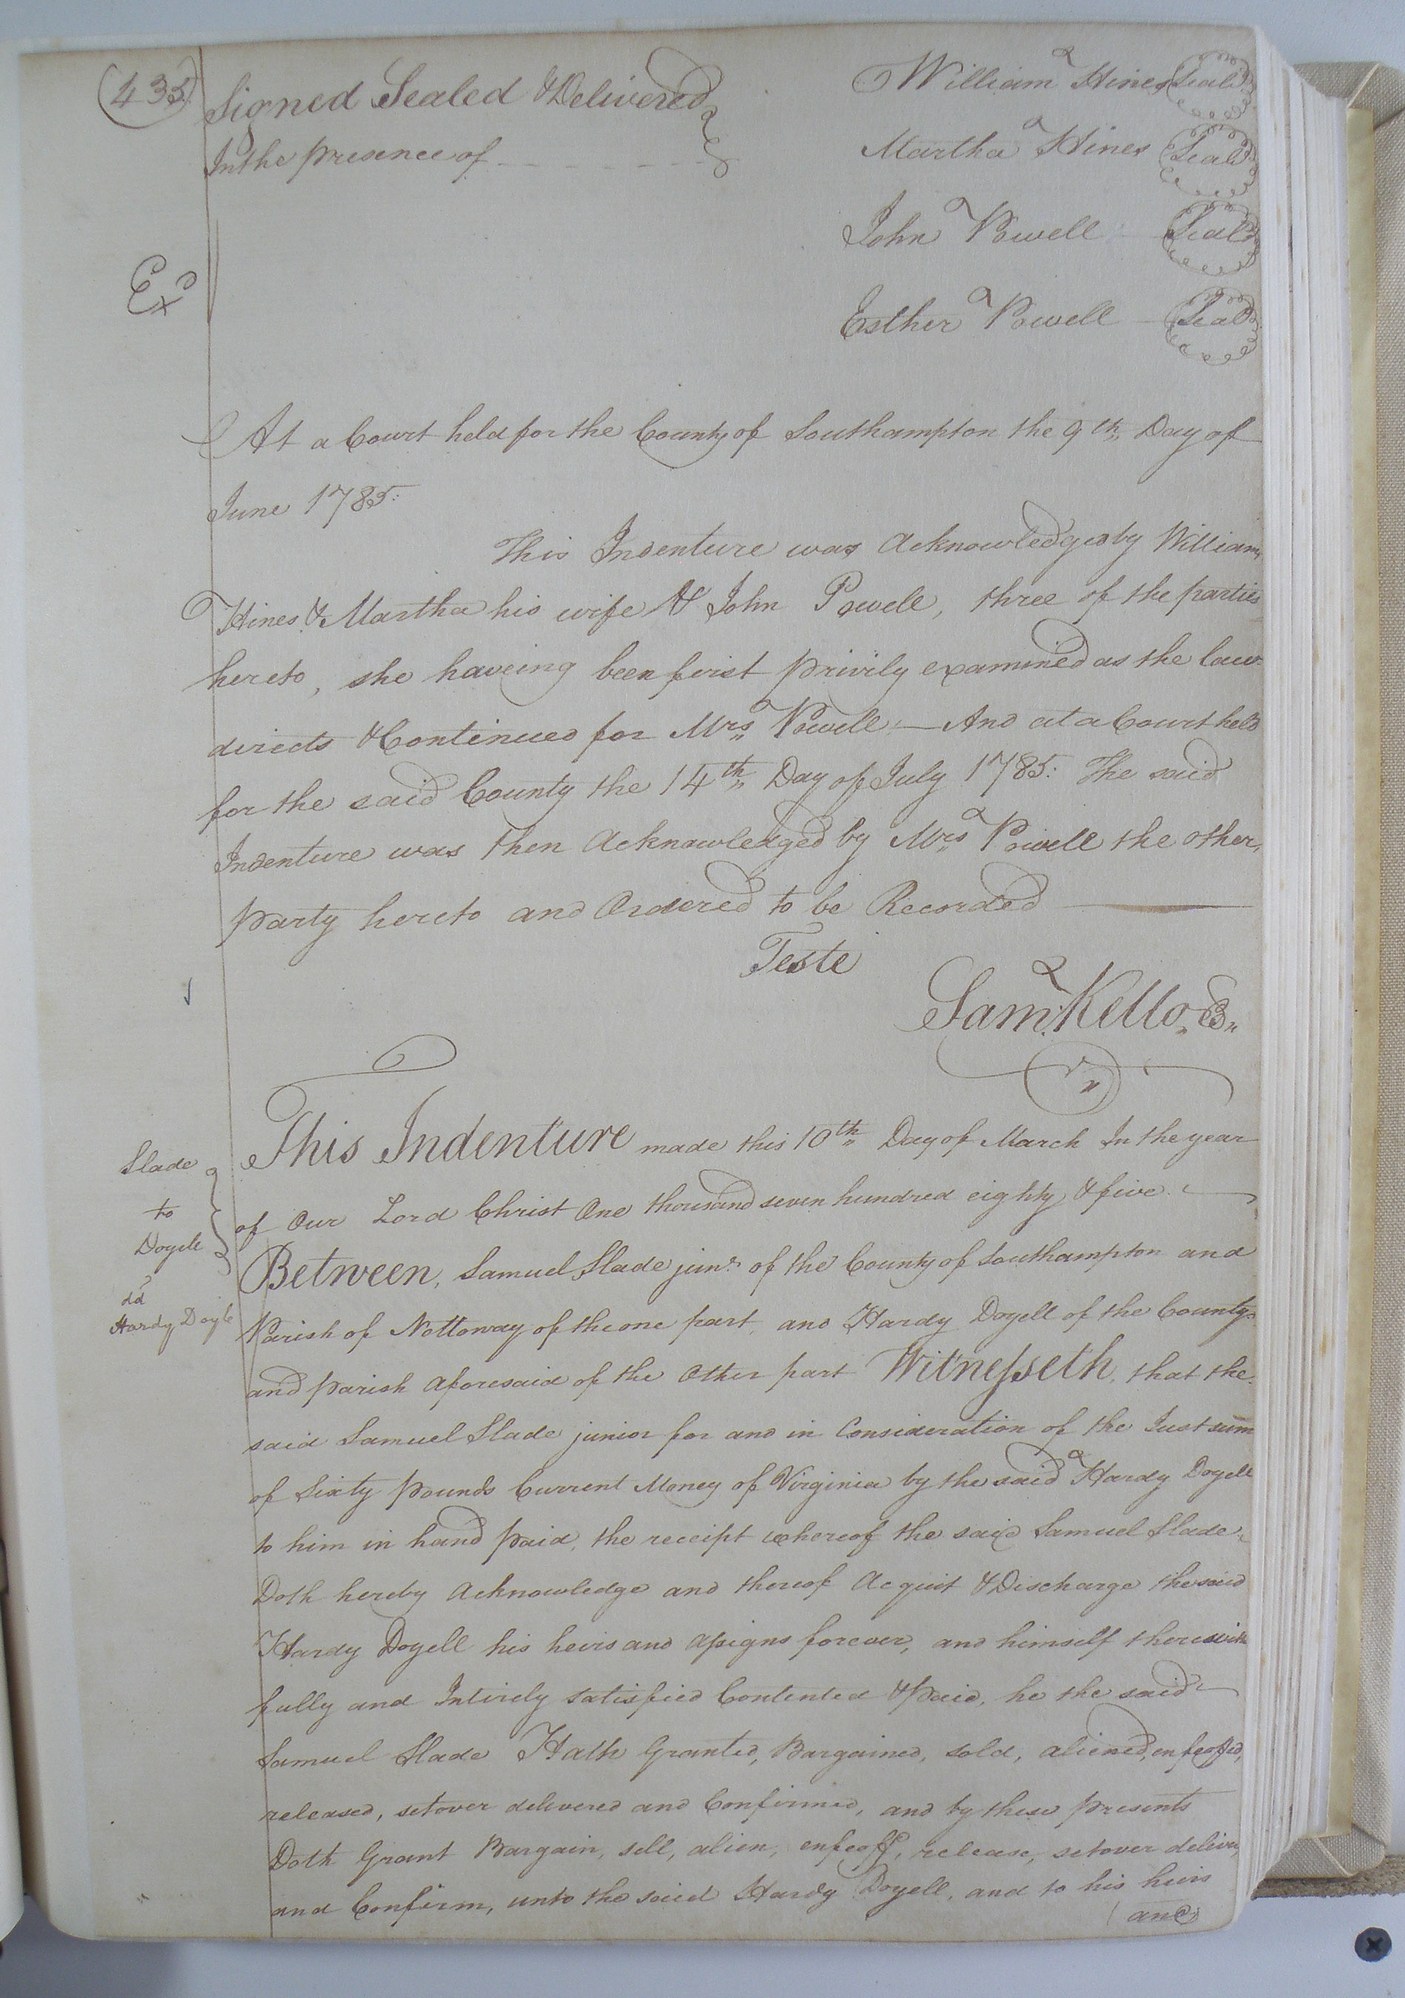 (435)
Signed Sealed & Delivered
In the presence of
William Hines Seal
Martha Hines Seal
John Powell Seal
Esther Powell Seal
Exd
At a Court held for the County of Southampton the 9th Day of
June 1785.
This Indenture was Acknowledged by William
Hines & Martha his wife & John Powell, three of the parties
hereto, she haveing been first privily examined as the law
directs & Continued for Mrs Powell — And at a Court held
for the said County the 14th Day of July 1785: The said
Indenture was then Acknowledged by Mrs Powell the other
party hereto and Ordered to be Recorded
Teste
Saml Kello
Slade
to
Doyele
dd
Hardy Doyle
This Indenture made this 10th Day of March In the year
of Our Lord Christ One thousand seven hundred eighty & five
Between, Samuel Slade junr of the County of Southampton and
Parish of Nottoway of the one part, and Hardy Doyell of the County
and parish aforesaid of the Other part Witnesseth, that the
said Samuel Slade junior for and in Consideration of the Just sum
of Sixty pounds Current Money of Virginia by the said Hardy Doyell
to him in hand paid, the receipt whereof the said Samuel Slade
Doth hereby Acknowledge and thereof Acquit & Discharge the said
Hardy Doyell his heirs and assigns forever, and himself therewith
fully and Intirely satisfied Contented & paid, he the said
Samuel Slade Hath Granted, Bargained, sold, aliened, enfeoffed,
released, setover delivered and Confirmed, and by these presents
Doth Grant Bargain, sell, alien, enfeoff, release, setover deliver,
and Confirm, unto the said Hardy Doyell, and to his heirs
and